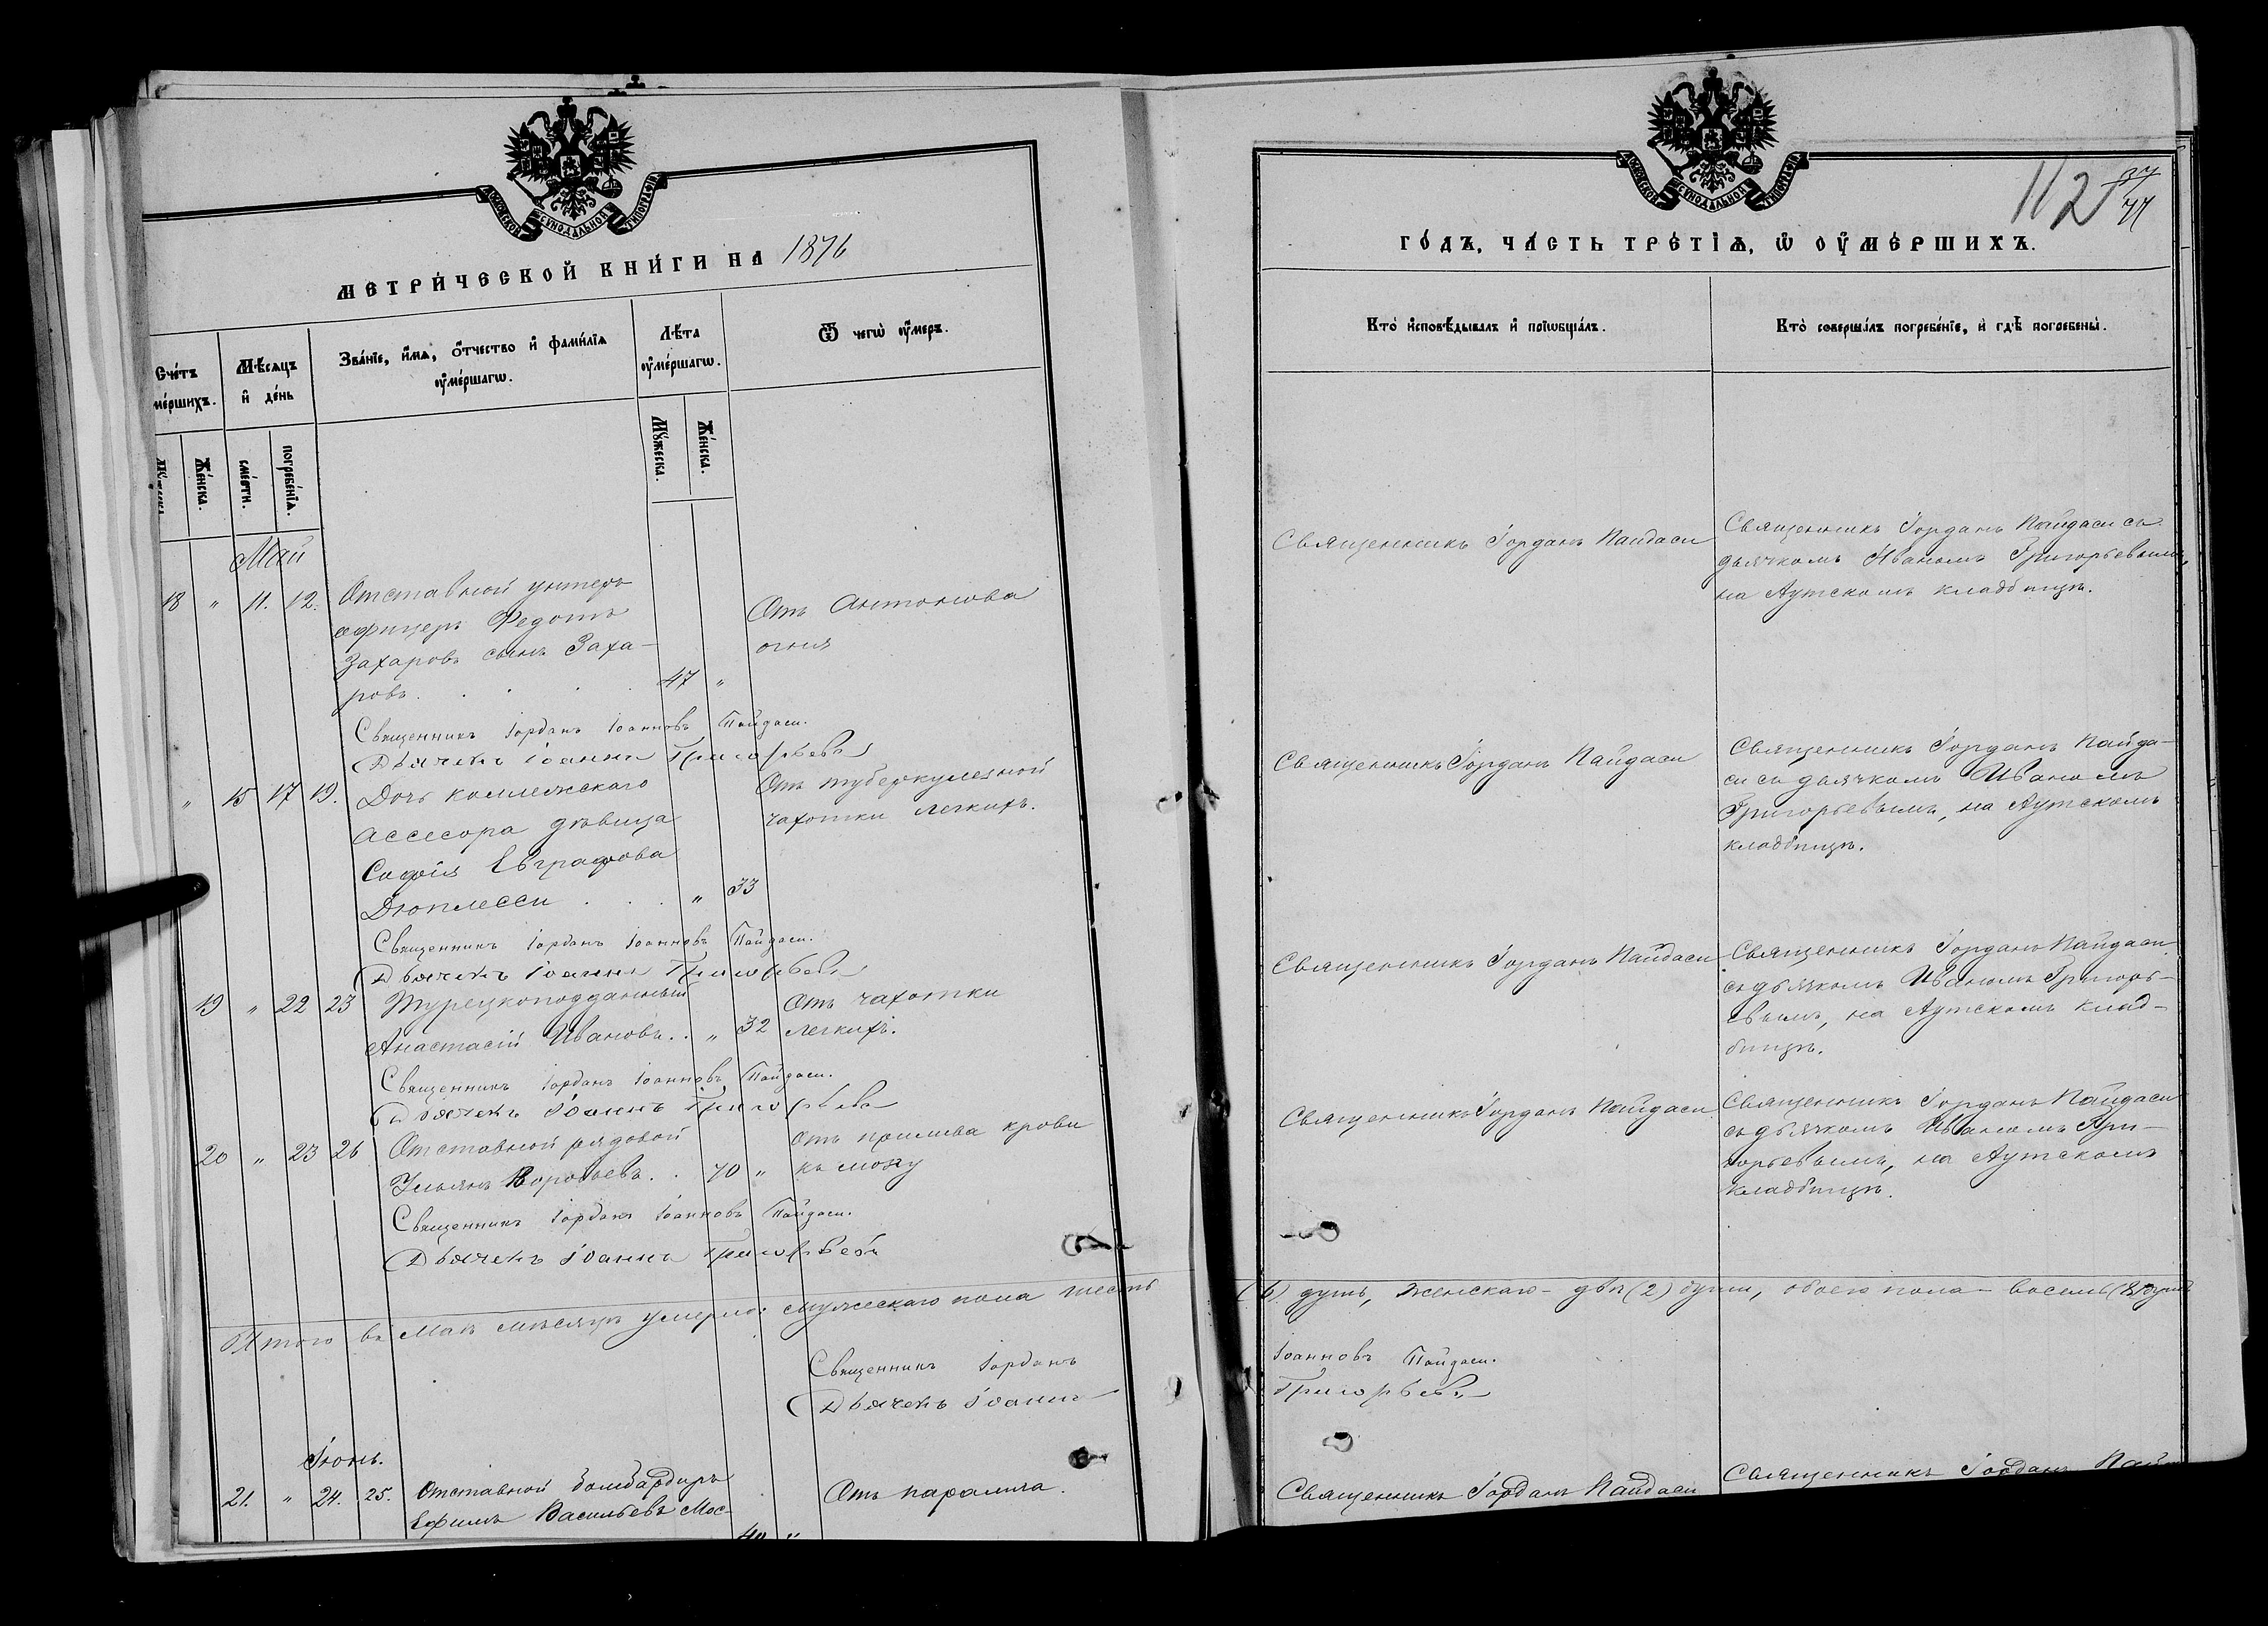 МОСКОВСКОЙ СУНОДАЛЬНОЙ ТИПОГРАФІИ
МЕТРИ́ЧЕСКОЙ КНИ́ГИ НА 1876
Счётъ
ме́ршихъ.
Мѣ́сяцъ
и҆ де́нь
Зва́нїе, и҆́мѧ, ѻ҆́тчество и҆ фами́лїѧ
ᲂу҆ме́ршагѡ.
Лѣ́та
ᲂу҆ме́ршагѡ.
Ѿ чегѡ̀ ᲂу҆́меръ.
Же́нска.
сме́рти.
погребе́нїѧ.
Мꙋ́жеска.
Же́нска.
Май
18 " 11. 12. Отставной унтеръ
офицеръ Федотъ
Захаровъ сынъ Заха-
ровъ. . . . 47 "
Отъ Антонова
огня
Священникъ Іорданъ Іоанновъ Пайдаси.
Дьячекъ Іоаннъ Григорьевъ
" 15 17 19. Дочь коллежскаго
ассесора дѣвица
Софія Евграфова
Дюплесси . . . " 33
Отъ туберкулезной
чахотки легкихъ.
Священникъ Іорданъ Іоанновъ Пайдаси.
Дьячекъ Іоаннъ Григорьевъ
19 " 22 23 Турецкоподданный
Анастасій Ивановъ. . " 32
Отъ чахотки
легкихъ.
Священникъ Іорданъ Іоанновъ Пайдаси.
Дьячекъ Іоаннъ Григорьевъ
20 " 23 26 Отставной рядовой
Ульянъ Воробьевъ. . 70 "
Отъ прилива крови
къ мозгу
Священникъ Іорданъ Іоанновъ Пайдаси.
Дьячекъ Іоаннъ Григорьевъ
Итого въ Маѣ мѣсяцѣ умерло: мужескаго пола шесть
Священникъ Іорданъ
Дьячекъ Іоаннъ
Іюнь.
21. " 24. 25. Отставной бомбардиръ
Ефимъ Васильевъ Мос-
40 "
Отъ паралича.
МОСКОВСКОЙ СУНОДАЛЬНОЙ ТИПОГРАФІИ
112 37/77
ГО́ДЪ, ЧА́СТЬ ТРЕ́ТЇѦ, Ѡ҆ ОУ҆МЕ́РШИХЪ.
Кто̀ и҆сповѣ́дывалъ и҆ прїѡбща́лъ.
Кто̀ соверша́лъ погребе́нїе, и҆ гдѣ̀ погребены̀.
Священникъ Іорданъ Пайдаси
Священникъ Іорданъ Пайдаси съ
дьячкомъ Иваномъ Григорьевымъ,
на Аутскомъ кладбищѣ.
Священникъ Іорданъ Пайдаси
Священникъ Іорданъ Пайда-
си съ дьячкомъ Иваномъ
Григорьевымъ, на Аутскомъ
кладбищѣ.
Священникъ Іорданъ Пайдаси
Священникъ Іорданъ Пайдаси
съ дьячкомъ Иваномъ Григорь-
евымъ, на Аутскомъ клад-
бищѣ.
Священникъ Іорданъ Пайдаси
Священникъ Іорданъ Пайдаси
съ дьячкомъ Иваномъ Гри-
горьевымъ, на Аутскомъ
кладбищѣ.
(6) душъ, женскаго - двѣ (2) души, обоего пола - восемь (8) душъ
Іоанновъ Пайдаси.
Григорьевъ
Священникъ Іорданъ Пайдаси
Священникъ Іорданъ Пайд